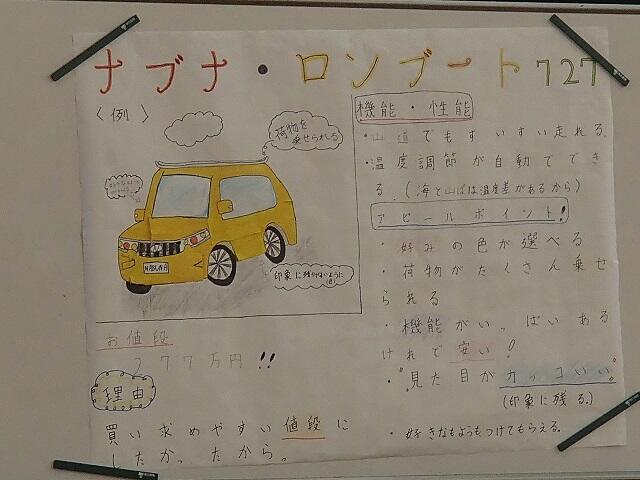 ナブナ・ロンブート727
〈例〉
荷物を
乗せられる
NABUNA
印象に残りやすいように
お値段
277万円!!
理由
買い求めやすい値段に
したかったから。
機能・性能
・山道でもすいすい走れる。
・温度調節が自動ででき
る。(海と山では温度差があるから)
アピールポイント!
・好みの色が選べる
・荷物がたくさん乗せ
られる
・機能がいっぱいある
けれで安い!
・"見た目がカッコいい"
(印象に残る。)
・好きなもようもつけてもらえる。